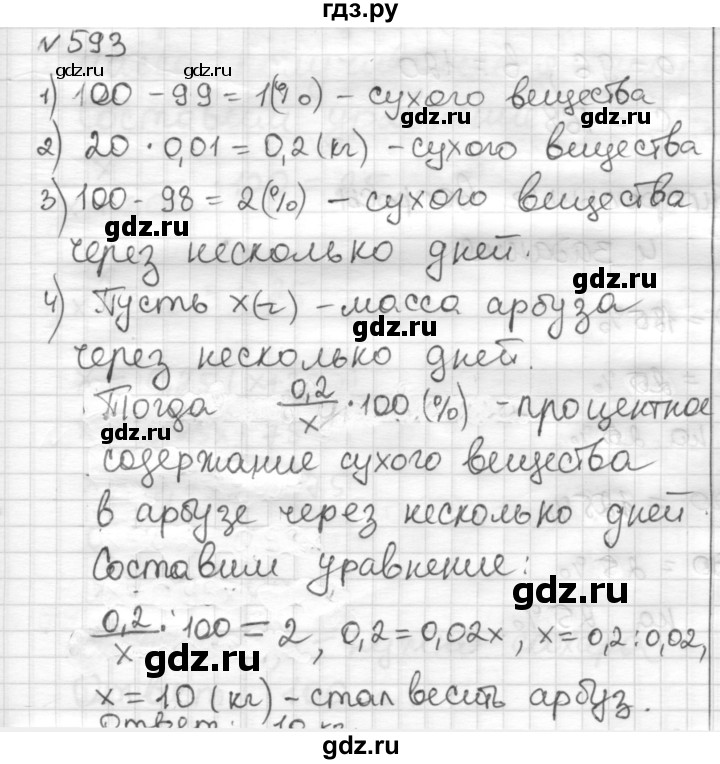 гдз.ру
№ 593
gdz.ru gdz.ru
1) 100 - 99 = 1(%) - сухого вещества
gdz.ru gdz.ru
2) 20 · 0,01 = 0,2 (кг) - сухого вещества
3) 100 - 98 = 2(%) - сухого вещества
gdz.ru gdz.ru
через несколько дней.
gdz.ru
4) Пусть x(г) - масса арбуза
gdz.ru
через несколько дней.
Тогда 0,2/x · 100 (%) - процентное
gdz.ru gdz.ru
содержание сухого вещества
в арбузе через несколько дней
Составим уравнение:
gdz.ru
0,2/x · 100 = 2, 0,2 = 0,02x, x = 0,2 : 0,02,
gdz.ru
x = 10 (кг) - стал весить арбуз.
Ответ: 10 кг
gdz.ru gdz.ru